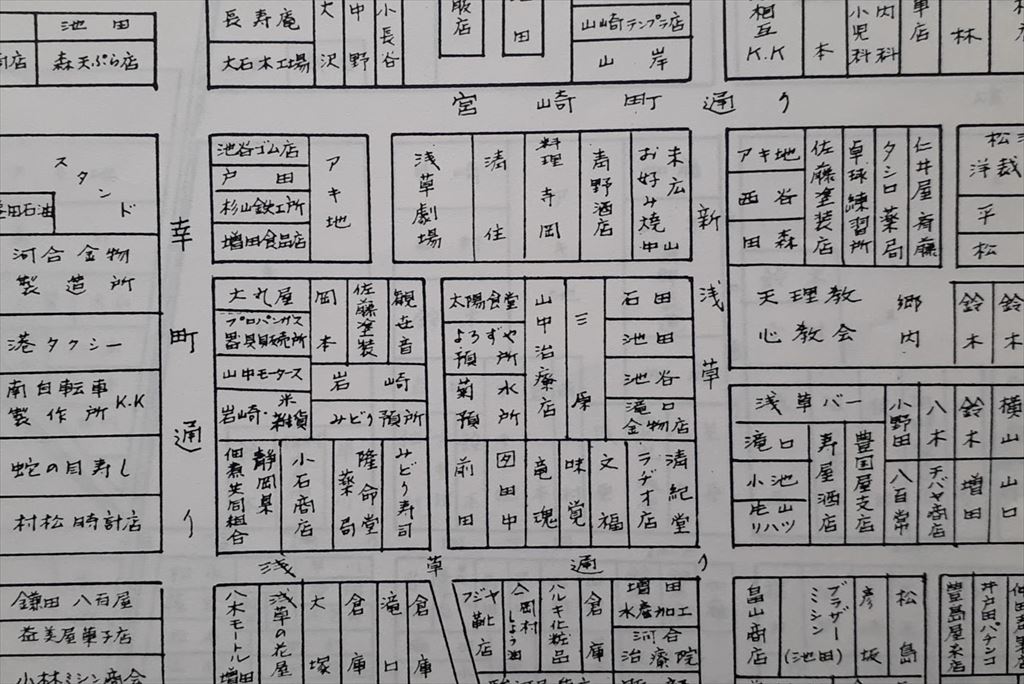 池田
森天ぷら店
長寿庵
大石木工場
大沢
中野
小長谷
飯店
田
山崎テンプラ店
山岸
相互K.K
本
内科
小児科
車店
林
店
宮崎町通り
スタンド
田石油
河合金物製造所
港タクシー
南自転車製作所K.K
蛇の目寿し
村松時計店
幸町通り
池谷ゴム店
戸田
杉山鉄工所
増田食品店
アキ地
浅草劇場
清住
料理寺岡
青野酒店
お好み焼
末広
中山
新浅草
アキ地
西谷
田森
佐藤塗装店
卓球練習所
タシロ薬局
仁井屋斉藤
洋裁
平
松
大丸屋
プロパンガス器具販売所
山中モータース
岩崎・米雑貨
岡本
佐藤塗装
観世音
岩崎
みどり預所
佃煮共同組合
静岡県
小石商店
隆命堂薬局
みどり寿司
太陽食堂
よろずや預所
菊水預所
山中治療店
三原
石田
池田
池谷
滝口金物店
前田
田中
竜魂
味覚
文福
ラヂオ店
清紀堂
天理教心教会
郷内
鈴木
鈴木
浅草バー
滝口
小池
寿屋酒店
豊国屋支店
小野田
八百常
八木
チバヤ商店
鈴木
増田
横山
山口
浅草通り
鎌田八百屋
益美屋菓子店
小林ミシン商会
八木モートル
増田
浅草の花屋
大塚
倉庫
滝口
倉庫
フジヤ靴店
岡村しょう油
ハルキ化粧品
倉庫
増田水産加工
河合治療院
畠山商店
ブラザーミシン(池田)
彦坂
松島
豊島屋茶店
井戸田パチンコ